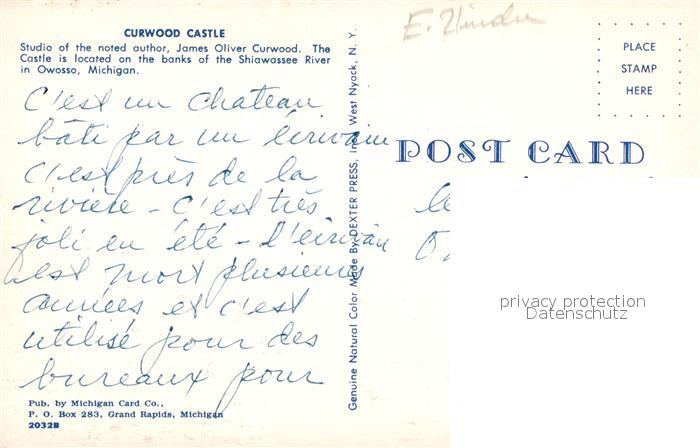 CURWOOD CASTLE
Studio of the noted author, James Oliver Curwood. The
Castle is located on the banks of the Shiawassee River
in Owosso, Michigan.
C'est un chateau
bâti par un écrivain
C'est près de la
rivière - C'est très
joli en été - l'écrivain
est mort plusieures
années et c'est
utilisé pour des
bureaux pour
Pub. by Michigan Card Co.,
P. O. Box 283, Grand Rapids, Michigan
2032B
Genuine Natural Color Made By DEXTER PRESS, Inc. West Nyack, N. Y.
E.
PLACE
STAMP
HERE
POST CARD
le
privacy protection
Datenschutz